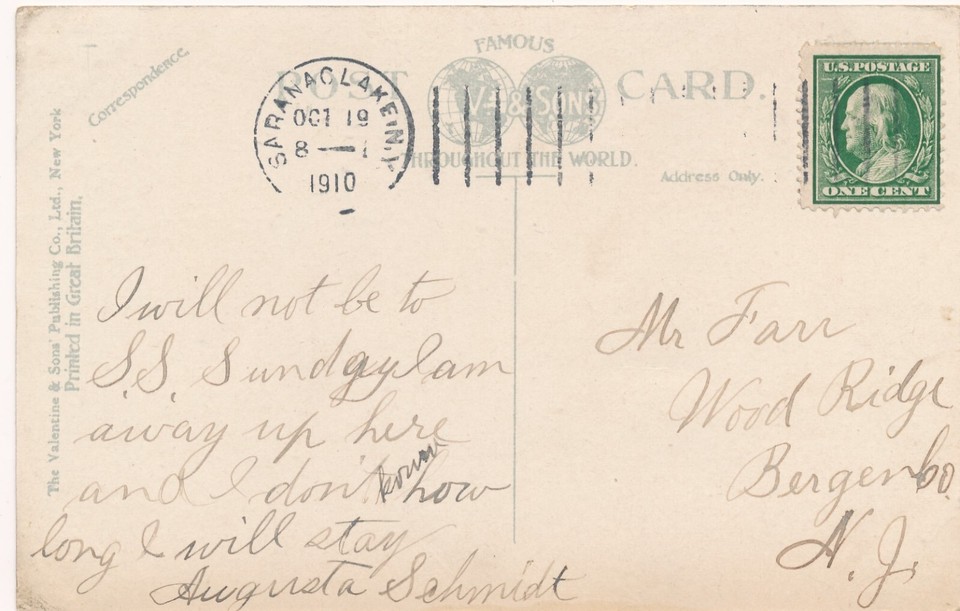 Correspondence
FAMOUS
POST CARD.
V. & SONS
THROUGHOUT THE WORLD.
Address Only.
SARANAC LAKE N.Y.
OCT 19
8 — 1
1910
U.S. POSTAGE
ONE CENT
The Valentine & Sons' Publishing Co., Ltd., New York
Printed in Great Britain.
I will not be to
S.S. Sunday I am
away up here
and I don't know how
long I will stay
Augusta Schmidt
Mr Farr
Wood Ridge
Bergen Co
N. J.